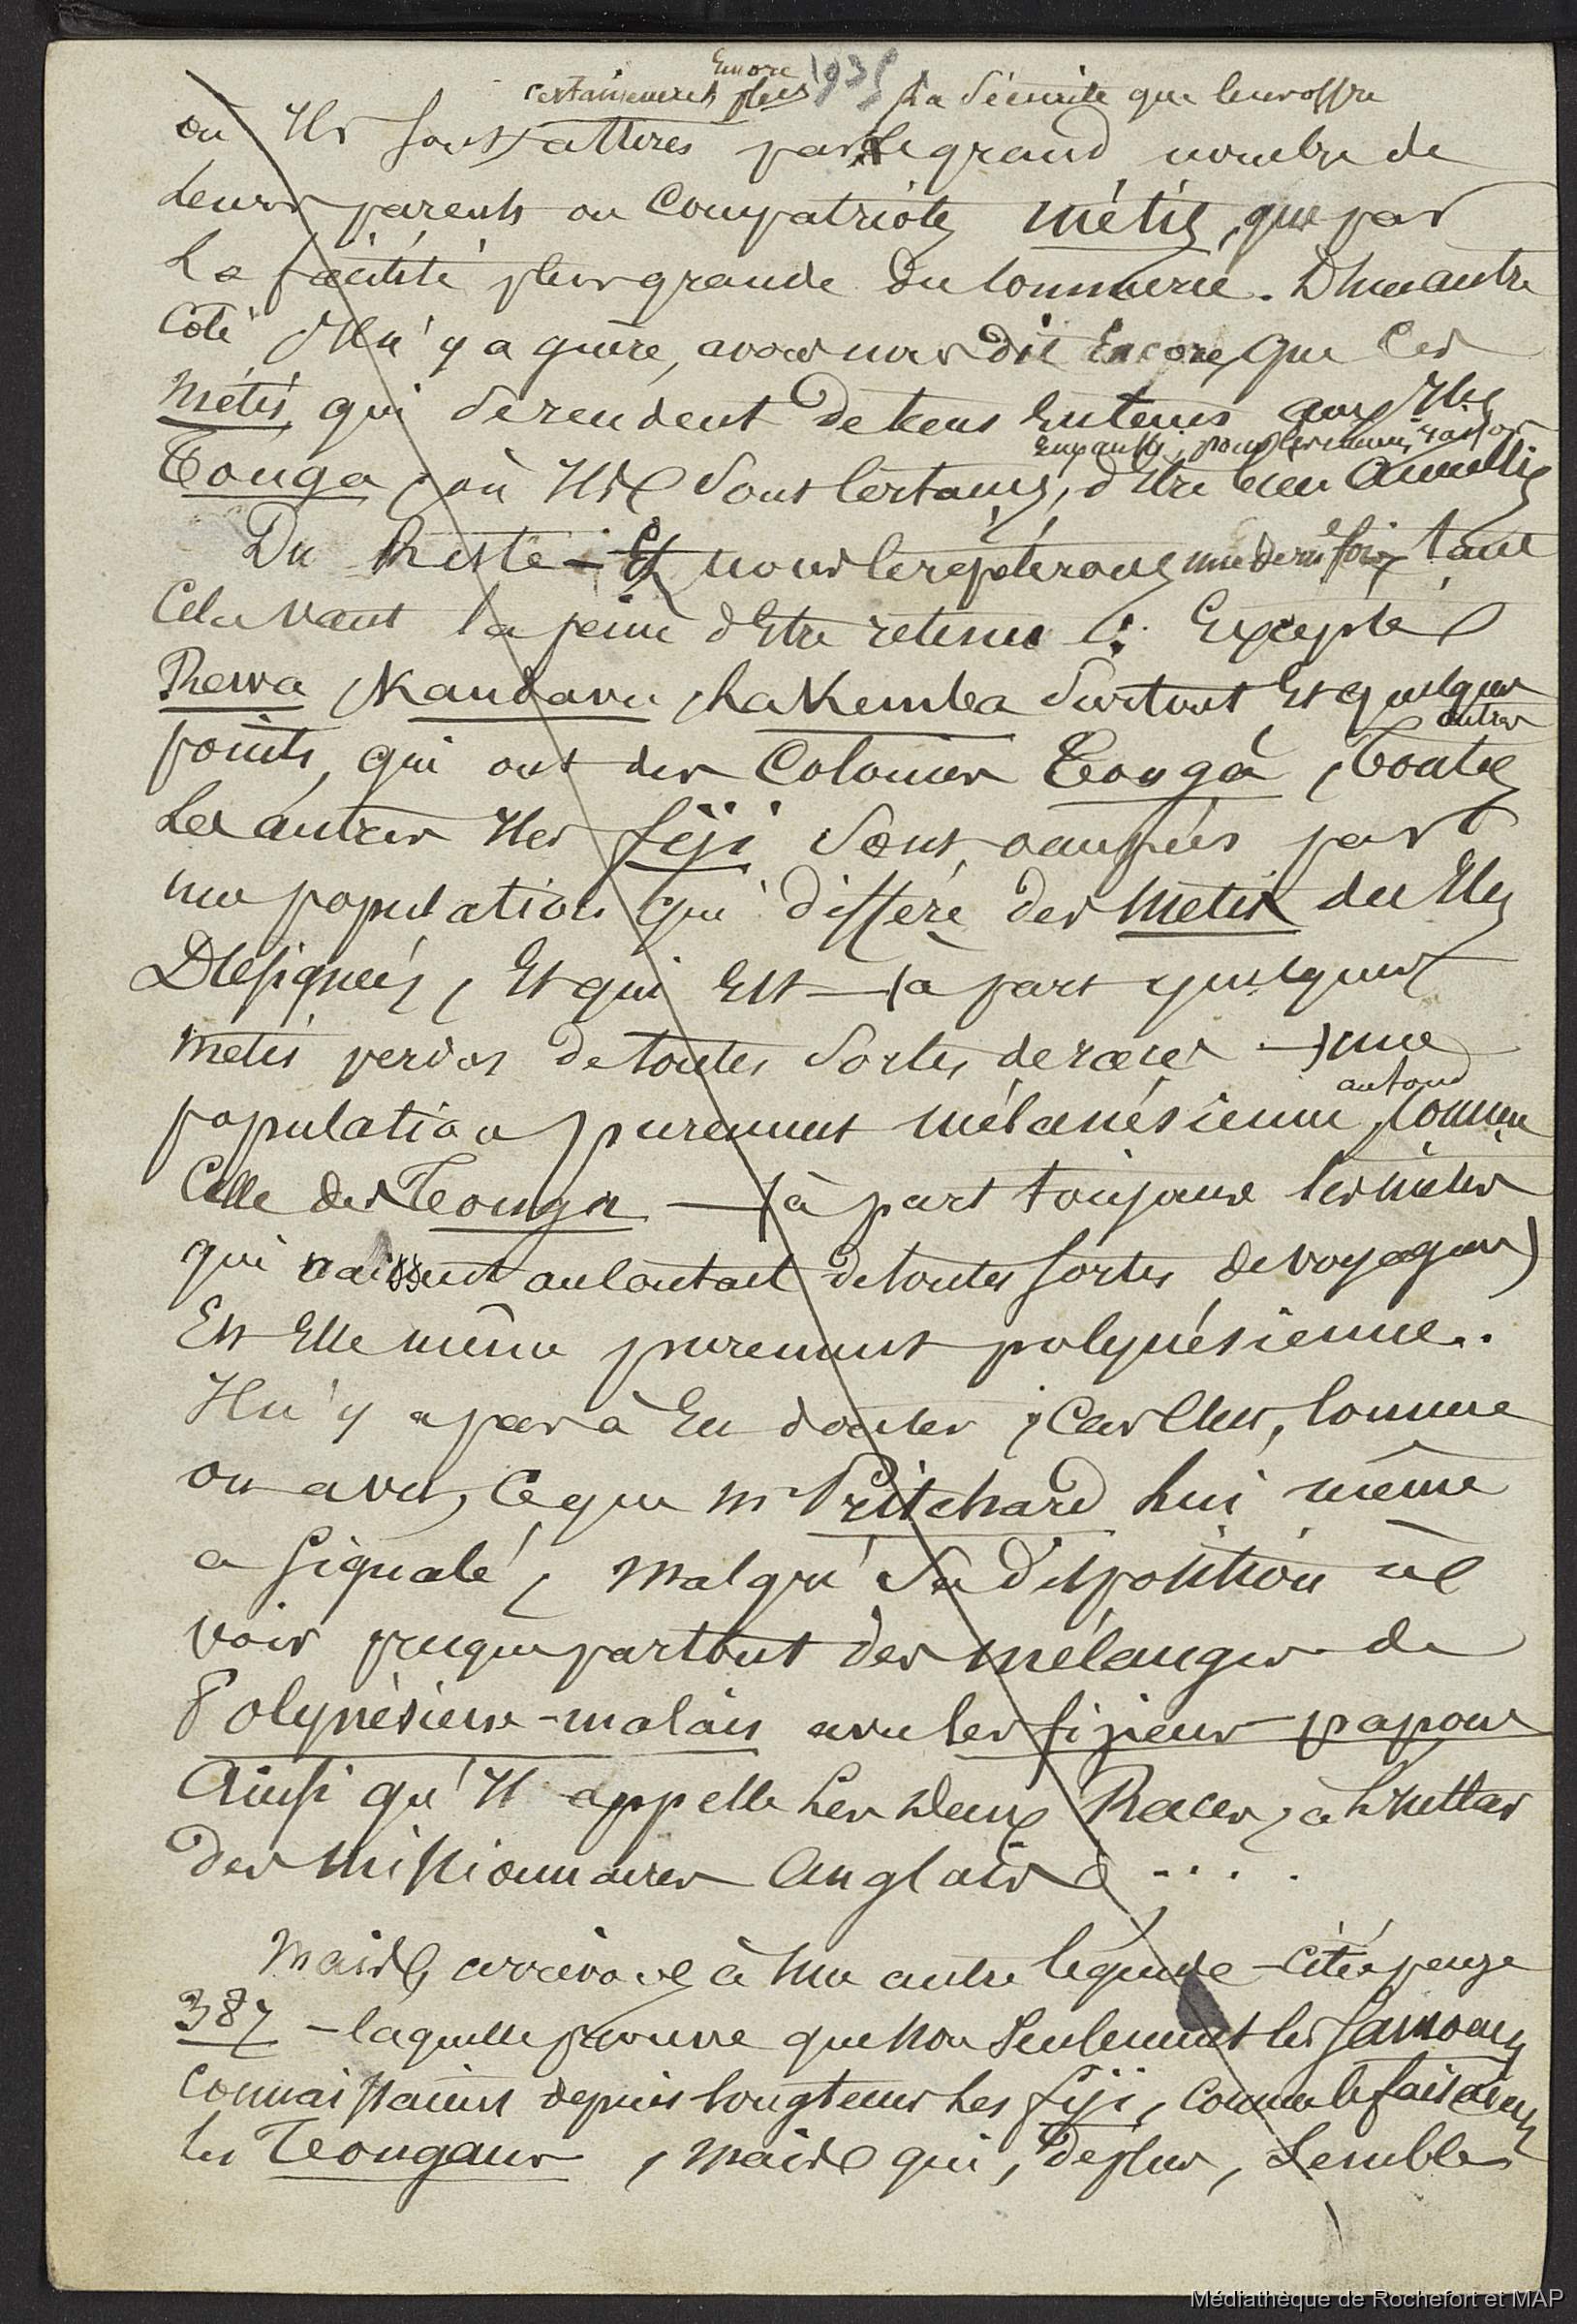 Encore 1935
certainement plus la sécurité que leur offre
où Ils sont attirés par le grand nombre de
leurs parents ou Compatriotes métis, que par
La facilité plus grande du commerce. D'une autre
Côté Il n'y a guère, avons nous dit Encore, que Ces
Métis qui se rendent de tems En tems aux Iles
Tonga, où Ils sont certains, d'Etre bien Accueillis
Du Reste - Et nous le répéterons une dernière fois, tant
Cela vaut la peine d'Etre retenu : Excepté
Rewa, Kandavu, Lakemba Surtout Et quelques
autres
points, qui ont des Colonies Tonga, Toutes
Les autres Iles fiji sont occupées par
une population qui diffère des Métis des Iles
Désignées, Et qui Est (à part quelques
métis perdus de toutes sortes de races) une
population purement mélanésienne, autant
comme
Celle des Tonga (à part toujours les métis
qui naissent au contact de toutes sortes de voyageurs)
Est Elle même purement polynésienne.
Il n'y a pas à En douter, car c'est, comme
on a vu, ce que Mr Pritchard lui même
a signalé, malgré sa disposition à
voir presque partout des mélanges de
Polynésiens-malais avec les fijiens papous
Ainsi qu'Il appelle Les Deux Races, à L'instar
des Missionnaires Anglais ....
Mais, arrivons à Une autre légende - citée page
387 - laquelle prouve que Non seulement les Samoans
connaissaient depuis longtems les fiji, comme le faisaient
les Tongans, mais qui, de plus, semble
Médiathèque de Rochefort et MAP